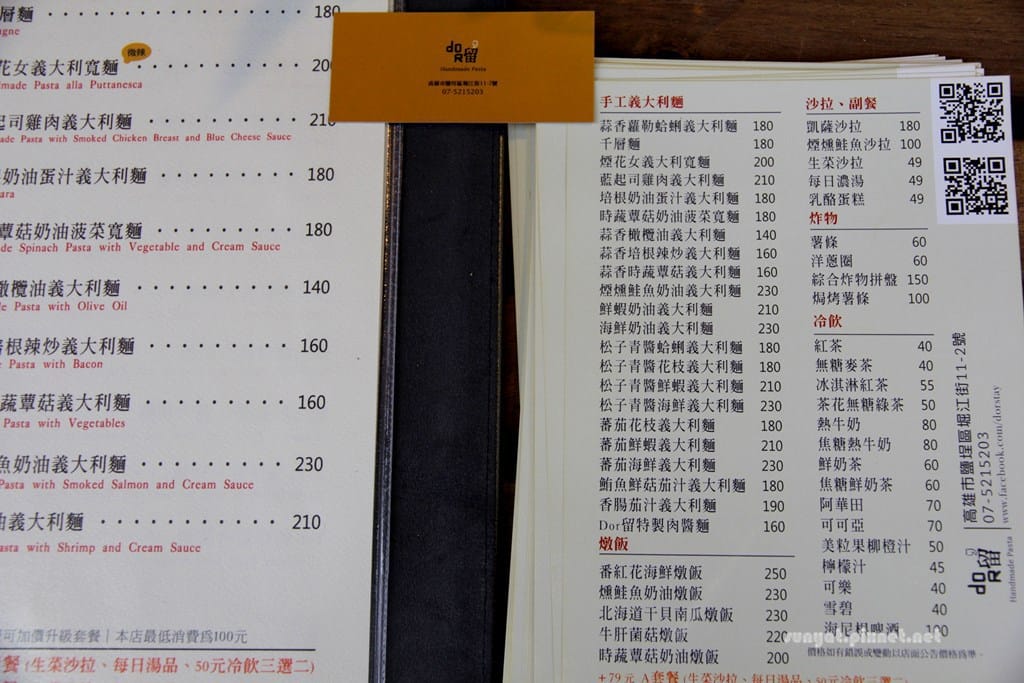 層麵 180
gne
微辣
花女義大利寬麵 200
made Pasta alla Puttanesca
起司雞肉義大利麵 210
ade Pasta with Smoked Chicken Breast and Blue Cheese Sauce
奶油蛋汁義大利麵 180
ara
蕈菇奶油菠菜寬麵 180
de Spinach Pasta with Vegetable and Cream Sauce
橄欖油義大利麵 140
e Pasta with Olive Oil
培根辣炒義大利麵 160
Pasta with Bacon
蔬蕈菇義大利麵 160
Pasta with Vegetables
魚奶油義大利麵 230
Pasta with Smoked Salmon and Cream Sauce
油義大利麵 210
asta with Shrimp and Cream Sauce
可加價升級套餐｜本店最低消費爲100元
餐 (生菜沙拉、每日湯品、50元冷飲三選二)
doR留
Handmade Pasta
高雄市鹽埕區堀江街11-2號
07-5215203
手工義大利麵
蒜香蘿勒蛤蜊義大利麵 180
千層麵 180
煙花女義大利寬麵 200
藍起司雞肉義大利麵 210
培根奶油蛋汁義大利麵 180
時蔬蕈菇奶油菠菜寬麵 180
蒜香橄欖油義大利麵 140
蒜香培根辣炒義大利麵 160
蒜香時蔬蕈菇義大利麵 160
煙燻鮭魚奶油義大利麵 230
鮮蝦奶油義大利麵 210
海鮮奶油義大利麵 230
松子青醬蛤蜊義大利麵 180
松子青醬花枝義大利麵 180
松子青醬鮮蝦義大利麵 210
松子青醬海鮮義大利麵 230
蕃茄花枝義大利麵 180
蕃茄鮮蝦義大利麵 210
蕃茄海鮮義大利麵 230
鮪魚鮮菇茄汁義大利麵 180
香腸茄汁義大利麵 190
Dor留特製肉醬麵 160
燉飯
番紅花海鮮燉飯 250
燻鮭魚奶油燉飯 230
北海道干貝南瓜燉飯 230
牛肝菌菇燉飯 220
時蔬蕈菇奶油燉飯 200
+79元 A套餐 (生菜沙拉、每日湯品、50元冷飲三選二)
沙拉、副餐
凱薩沙拉 180
煙燻鮭魚沙拉 100
生菜沙拉 49
每日濃湯 49
乳酪蛋糕 49
炸物
薯條 60
洋蔥圈 60
綜合炸物拼盤 150
焗烤薯條 100
冷飲
紅茶 40
無糖麥茶 40
冰淇淋紅茶 55
茶花無糖綠茶 50
熱牛奶 80
焦糖熱牛奶 80
鮮奶茶 60
焦糖鮮奶茶 60
阿華田 70
可可亞 70
美粒果柳橙汁 50
檸檬汁 45
可樂 40
雪碧 40
海尼根啤酒 100
價格如有錯誤或變動以店面公告價格爲準。
高雄市鹽埕區堀江街11-2號
07-5215203
www.facebook.com/dorstay
doR留
Handmade Pasta
sunyat.pixnet.net